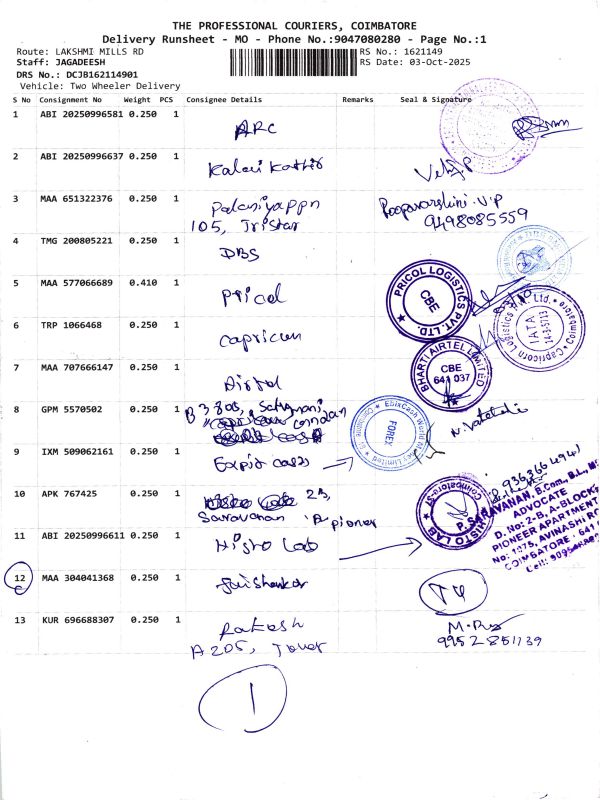 THE PROFESSIONAL COURIERS, COIMBATORE
Delivery Runsheet - MO - Phone No.:9047080280 - Page No.:1
Route: LAKSHMI MILLS RD
RS No.: 1621149
Staff: JAGADEESH
RS Date: 03-Oct-2025
DRS No.: DCJB162114901
Vehicle: Two Wheeler Delivery
S No Consignment No Weight PCS Consignee Details Remarks Seal & Signature
1 ABI 20250996581 0.250 1 ARC
2 ABI 20250996637 0.250 1 Kalai Kathir
3 MAA 651322376 0.250 1 Palaniyappn
105, Tristar
Poopvarshini V.P
9498085559
4 TMG 200805221 0.250 1 DBS
5 MAA 577066689 0.410 1 Pricol
PRICOL LOGISTICS PVT. LTD.
CBE
6 TRP 1066468 0.250 1 Capricon
Capricorn Logistics Pvt. Ltd.
IATA
Coimbatore
7 MAA 707666147 0.250 1 Airtel
BHARTI AIRTEL LIMITED
CBE
641 037
8 GPM 5570502 0.250 1
9 IXM 509062161 0.250 1
EbixCash World Money Limited
FOREX
10 APK 767425 0.250 1 2B,
Saravanan pioner
P. SARAVANAN, B.Com., B.L.,
ADVOCATE
D. No: 2-B, A-BLOCK
PIONEER APARTMENT
No: 1075, AVINASHI RO
COIMBATORE - 641
11 ABI 20250996611 0.250 1 Histo Lab
HISTO LAB
Coimbatore-37
12 MAA 304041368 0.250 1
13 KUR 696688307 0.250 1 Rakesh
A205, Tower
9952851139
1